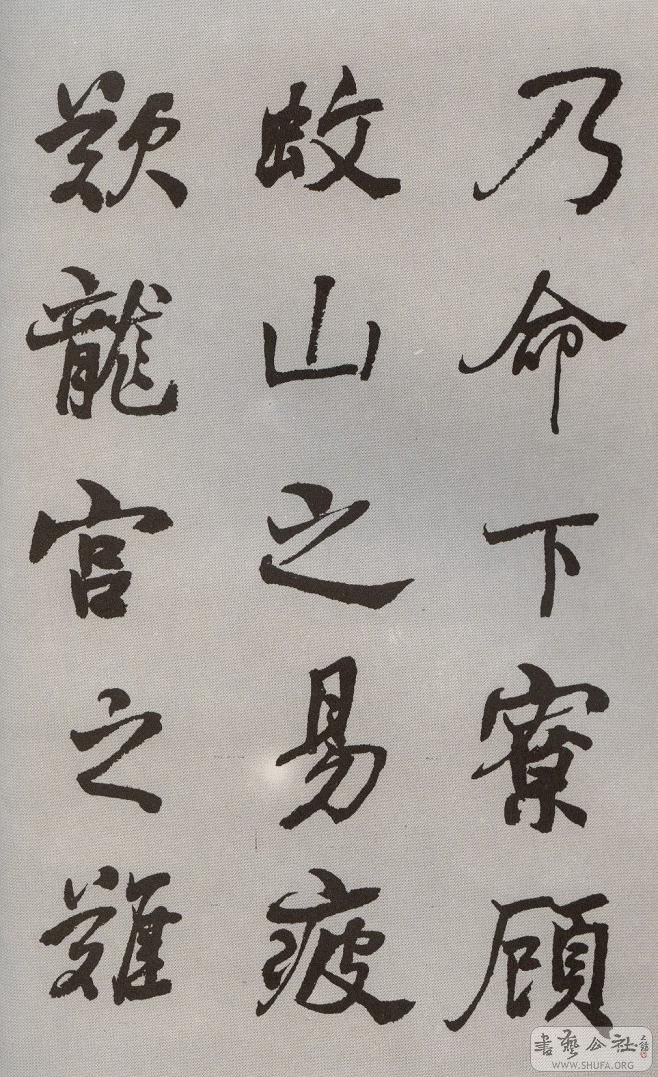 乃命下寮顧
蚊山之易疲
歎龍宮之難
書藝公社
WWW.SHUFA.ORG